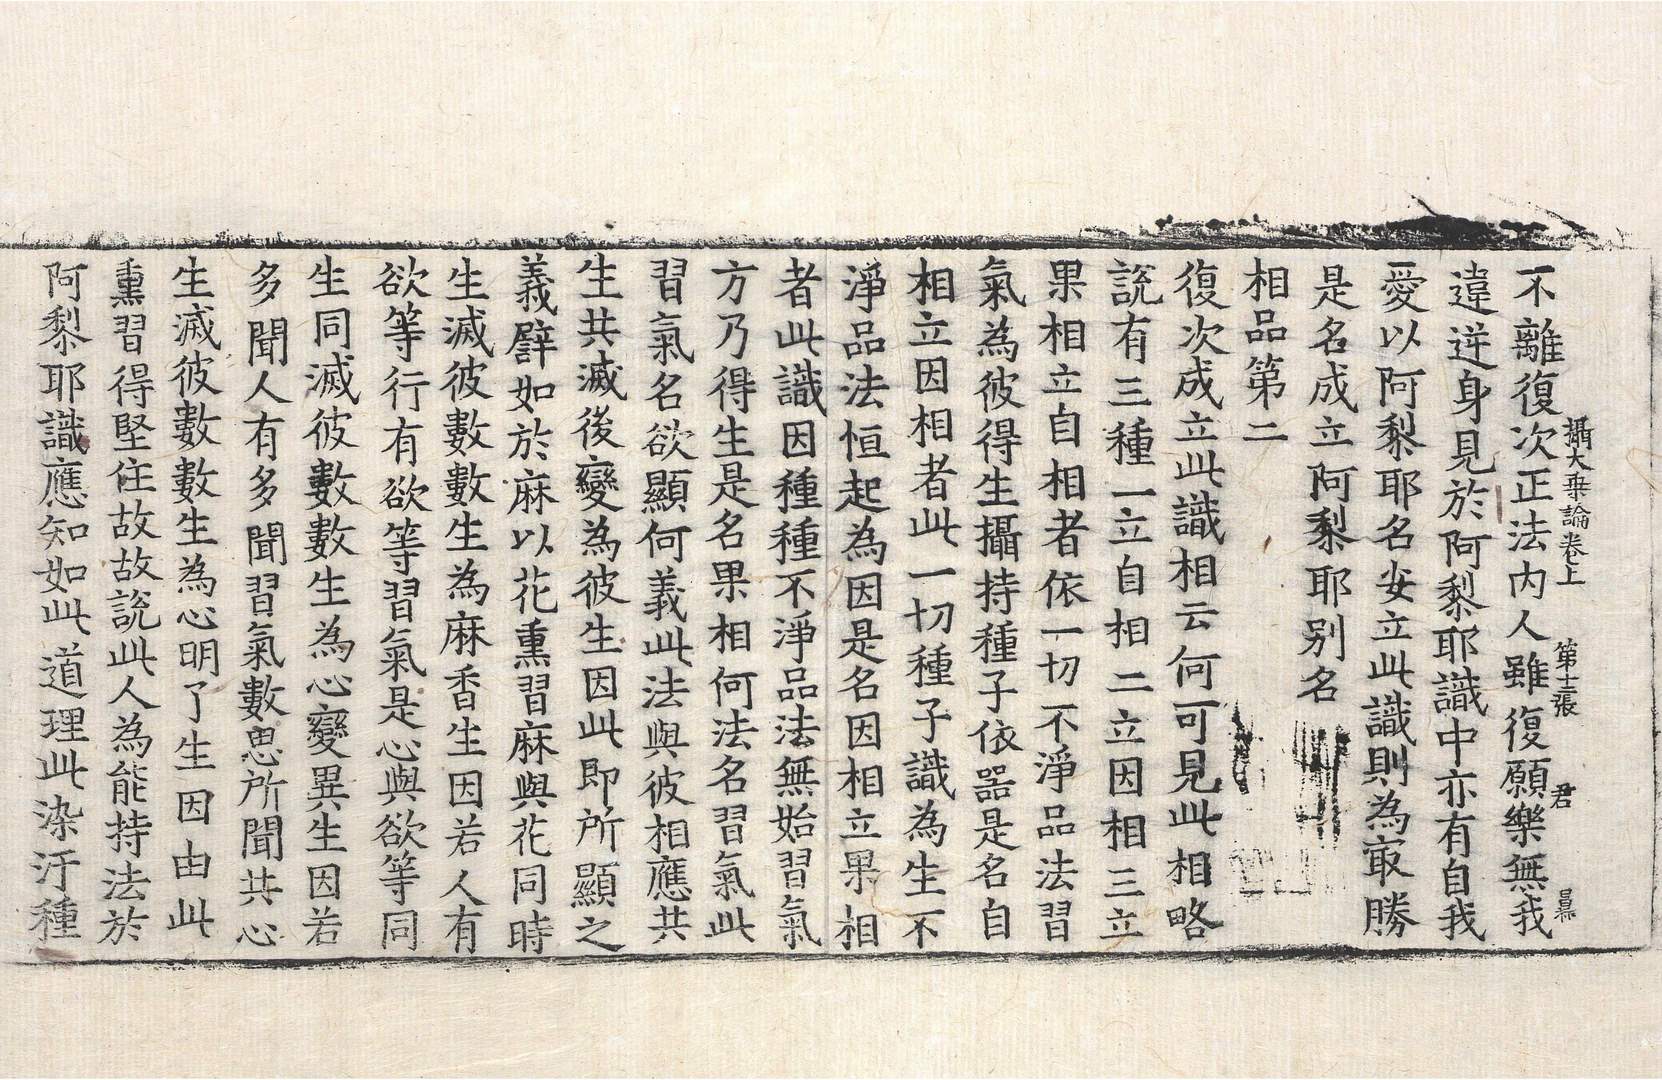 攝大乗論卷上 第十二張 君
不離復次正法内人雖復願樂無我
違逆身見於阿黎耶識中亦有自我
愛以阿黎耶名安立此識則為㝡勝
是名成立阿黎耶别名
相品第二
復次成立此識相云何可見此相略
説有三種一立自相二立因相三立
果相立自相者依一切不淨品法習
氣為彼得生攝持種子依器是名自
相立因相者此一切種子識為生不
淨品法恒起為因是名因相立果相
者此識因種種不淨品法無始習氣
方乃得生是名果相何法名習氣此
習氣名欲顯何義此法與彼相應共
生共滅後變為彼生因此即所顯之
義譬如於麻以花熏習麻與花同時
生滅彼數數生為麻香生因若人有
欲等行有欲等習氣是心與欲等同
生同滅彼數數生為心變異生因若
多聞人有多聞習氣數思所聞共心
生滅彼數數生為心明了生因由此
熏習得堅住故故說此人為能持法於
阿黎耶識應知如此道理此染汙種